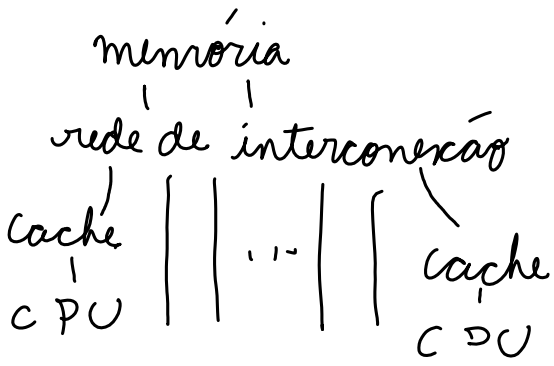 memória
rede de interconexão
cache
...
cache
CPU
CPU